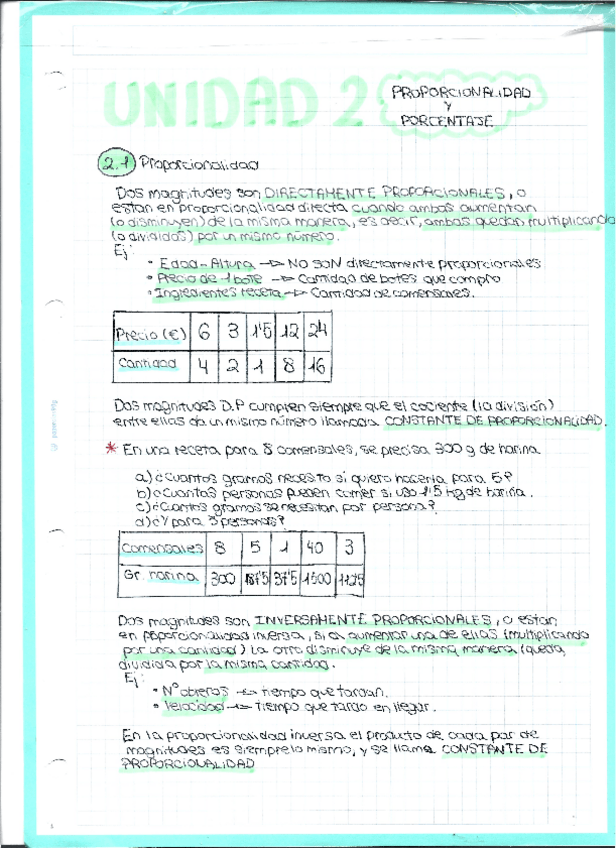 UNIDAD 2
PROPORCIONALIDAD
Y
PORCENTAJE
2.1 Proporcionalidad
Dos magnitudes son DIRECTAMENTE PROPORCIONALES, o
están en proporcionalidad directa cuando ambas aumentan
(o disminuyen) de la misma manera, es decir, ambas quedan multiplicando
(o divididas) por un mismo número.
Ej:
• Edad - Altura → NO SON directamente proporcionales
• Precio de 1 bote → Cantidad de botes que compro
• Ingredientes receta → Cantidad de comensales.
Precio (€) 6 3 1'5 12 24
Cantidad 4 2 1 8 16
Dos magnitudes D.P cumplen siempre que el cociente (la división)
entre ellas da un mismo número llamada CONSTANTE DE PROPORCIONALIDAD.
* En una receta para 8 comensales, se precisa 300 g de harina
a) ¿Cuantos gramos necesito si quiero hacerla para 5?
b) ¿Cuantas personas pueden comer si uso 1'5 kg de harina.
c) ¿Cuantos gramos se necesitan por persona?
d) ¿Y para 3 personas?
Comensales 8 5 1 40 3
Gr. harina 300 187'5 37'5 1500 112'5
Dos magnitudes son INVERSAMENTE PROPORCIONALES, o están
en proporcionalidad inversa, si al aumentar una de ellas (multiplicando
por una cantidad) la otra disminuye de la misma manera (queda
dividida por la misma cantidad.
Ej:
• Nº obreros → tiempo que tardan.
• Velocidad → tiempo que tardo en llegar.
En la proporcionalidad inversa el producto de cada par de
magnitudes es siempre lo mismo, y se llama CONSTANTE DE
PROPORCIONALIDAD